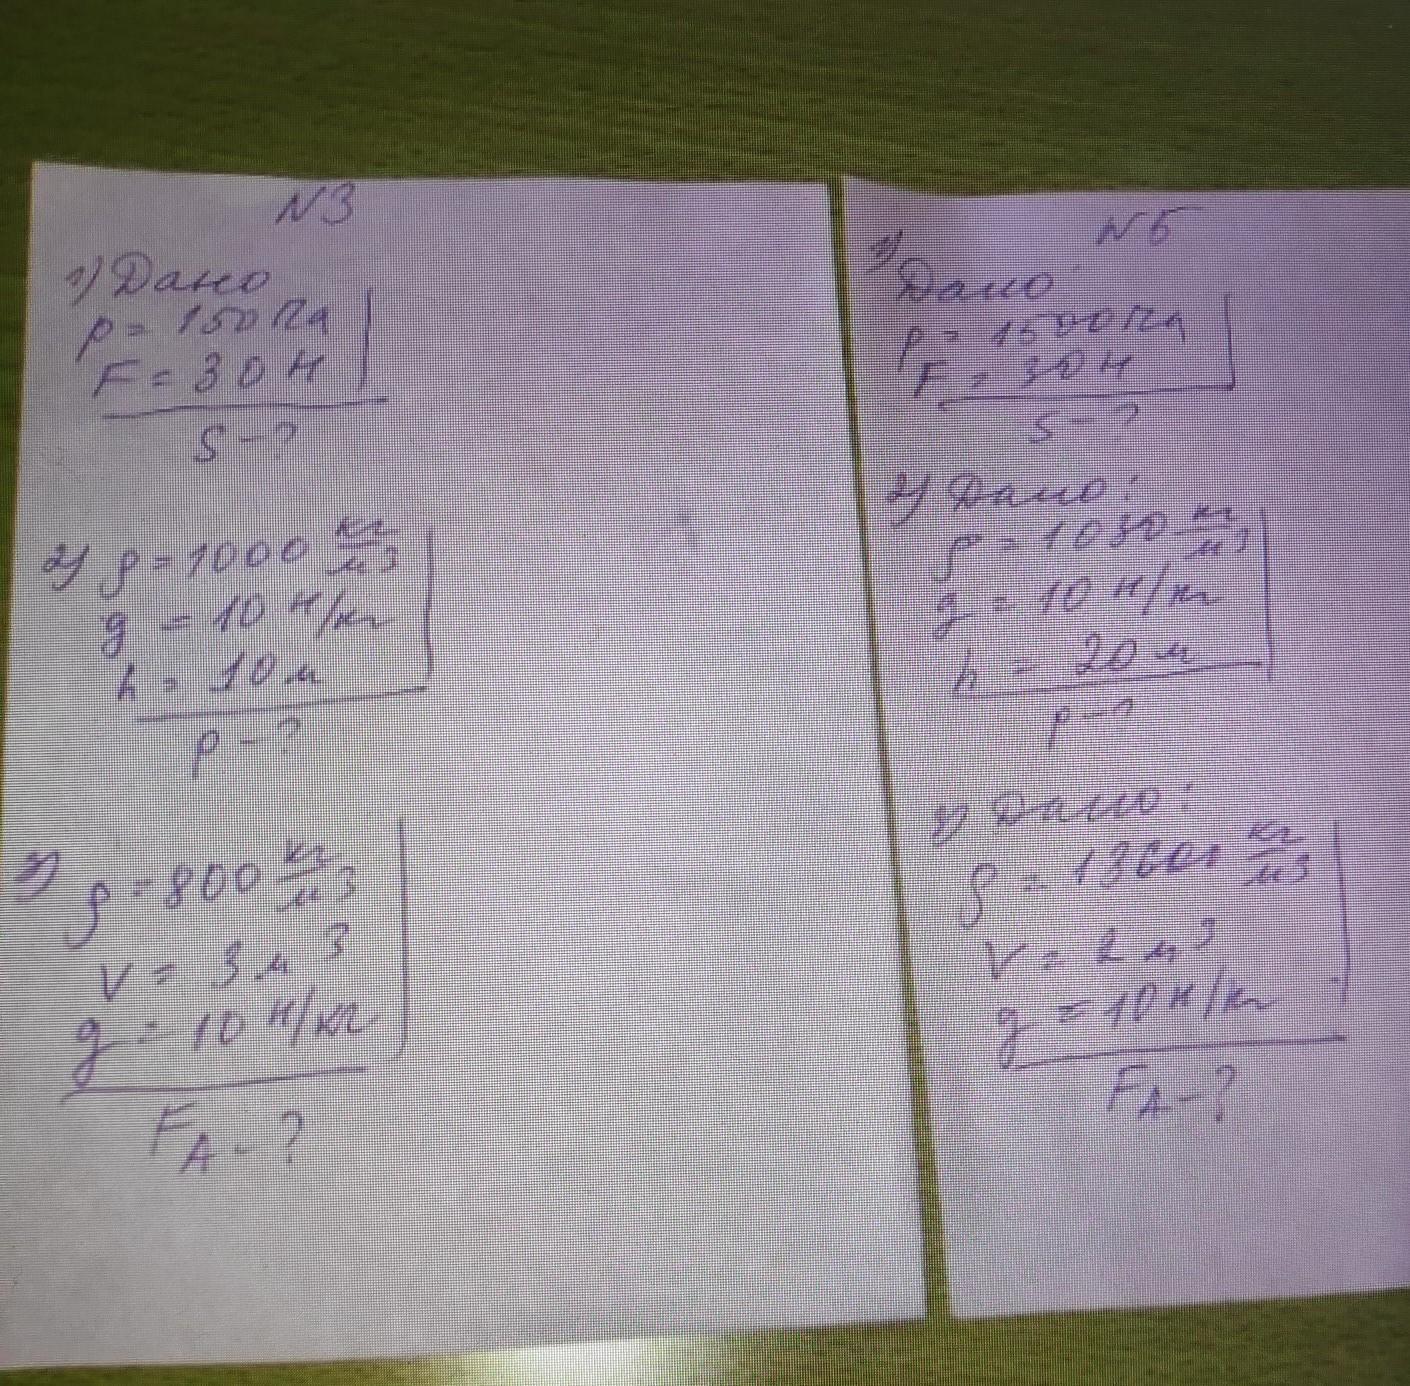 N3
1) Дано
p = 150 Па
F = 30 Н
S - ?
2) ρ = 1000 кг/м3
g = 10 Н/кг
h = 10 м
p - ?
3) ρ = 800 кг/м3
V = 3 м3
g = 10 Н/кг
FA - ?
N5
1) Дано
p = 1500 Па
F = 30 Н
S - ?
2) Дано:
ρ = 1030 кг/м3
g = 10 Н/кг
h = 20 м
p - ?
3) Дано:
ρ = 13600 кг/м3
V = 2 м3
g = 10 Н/кг
FA - ?